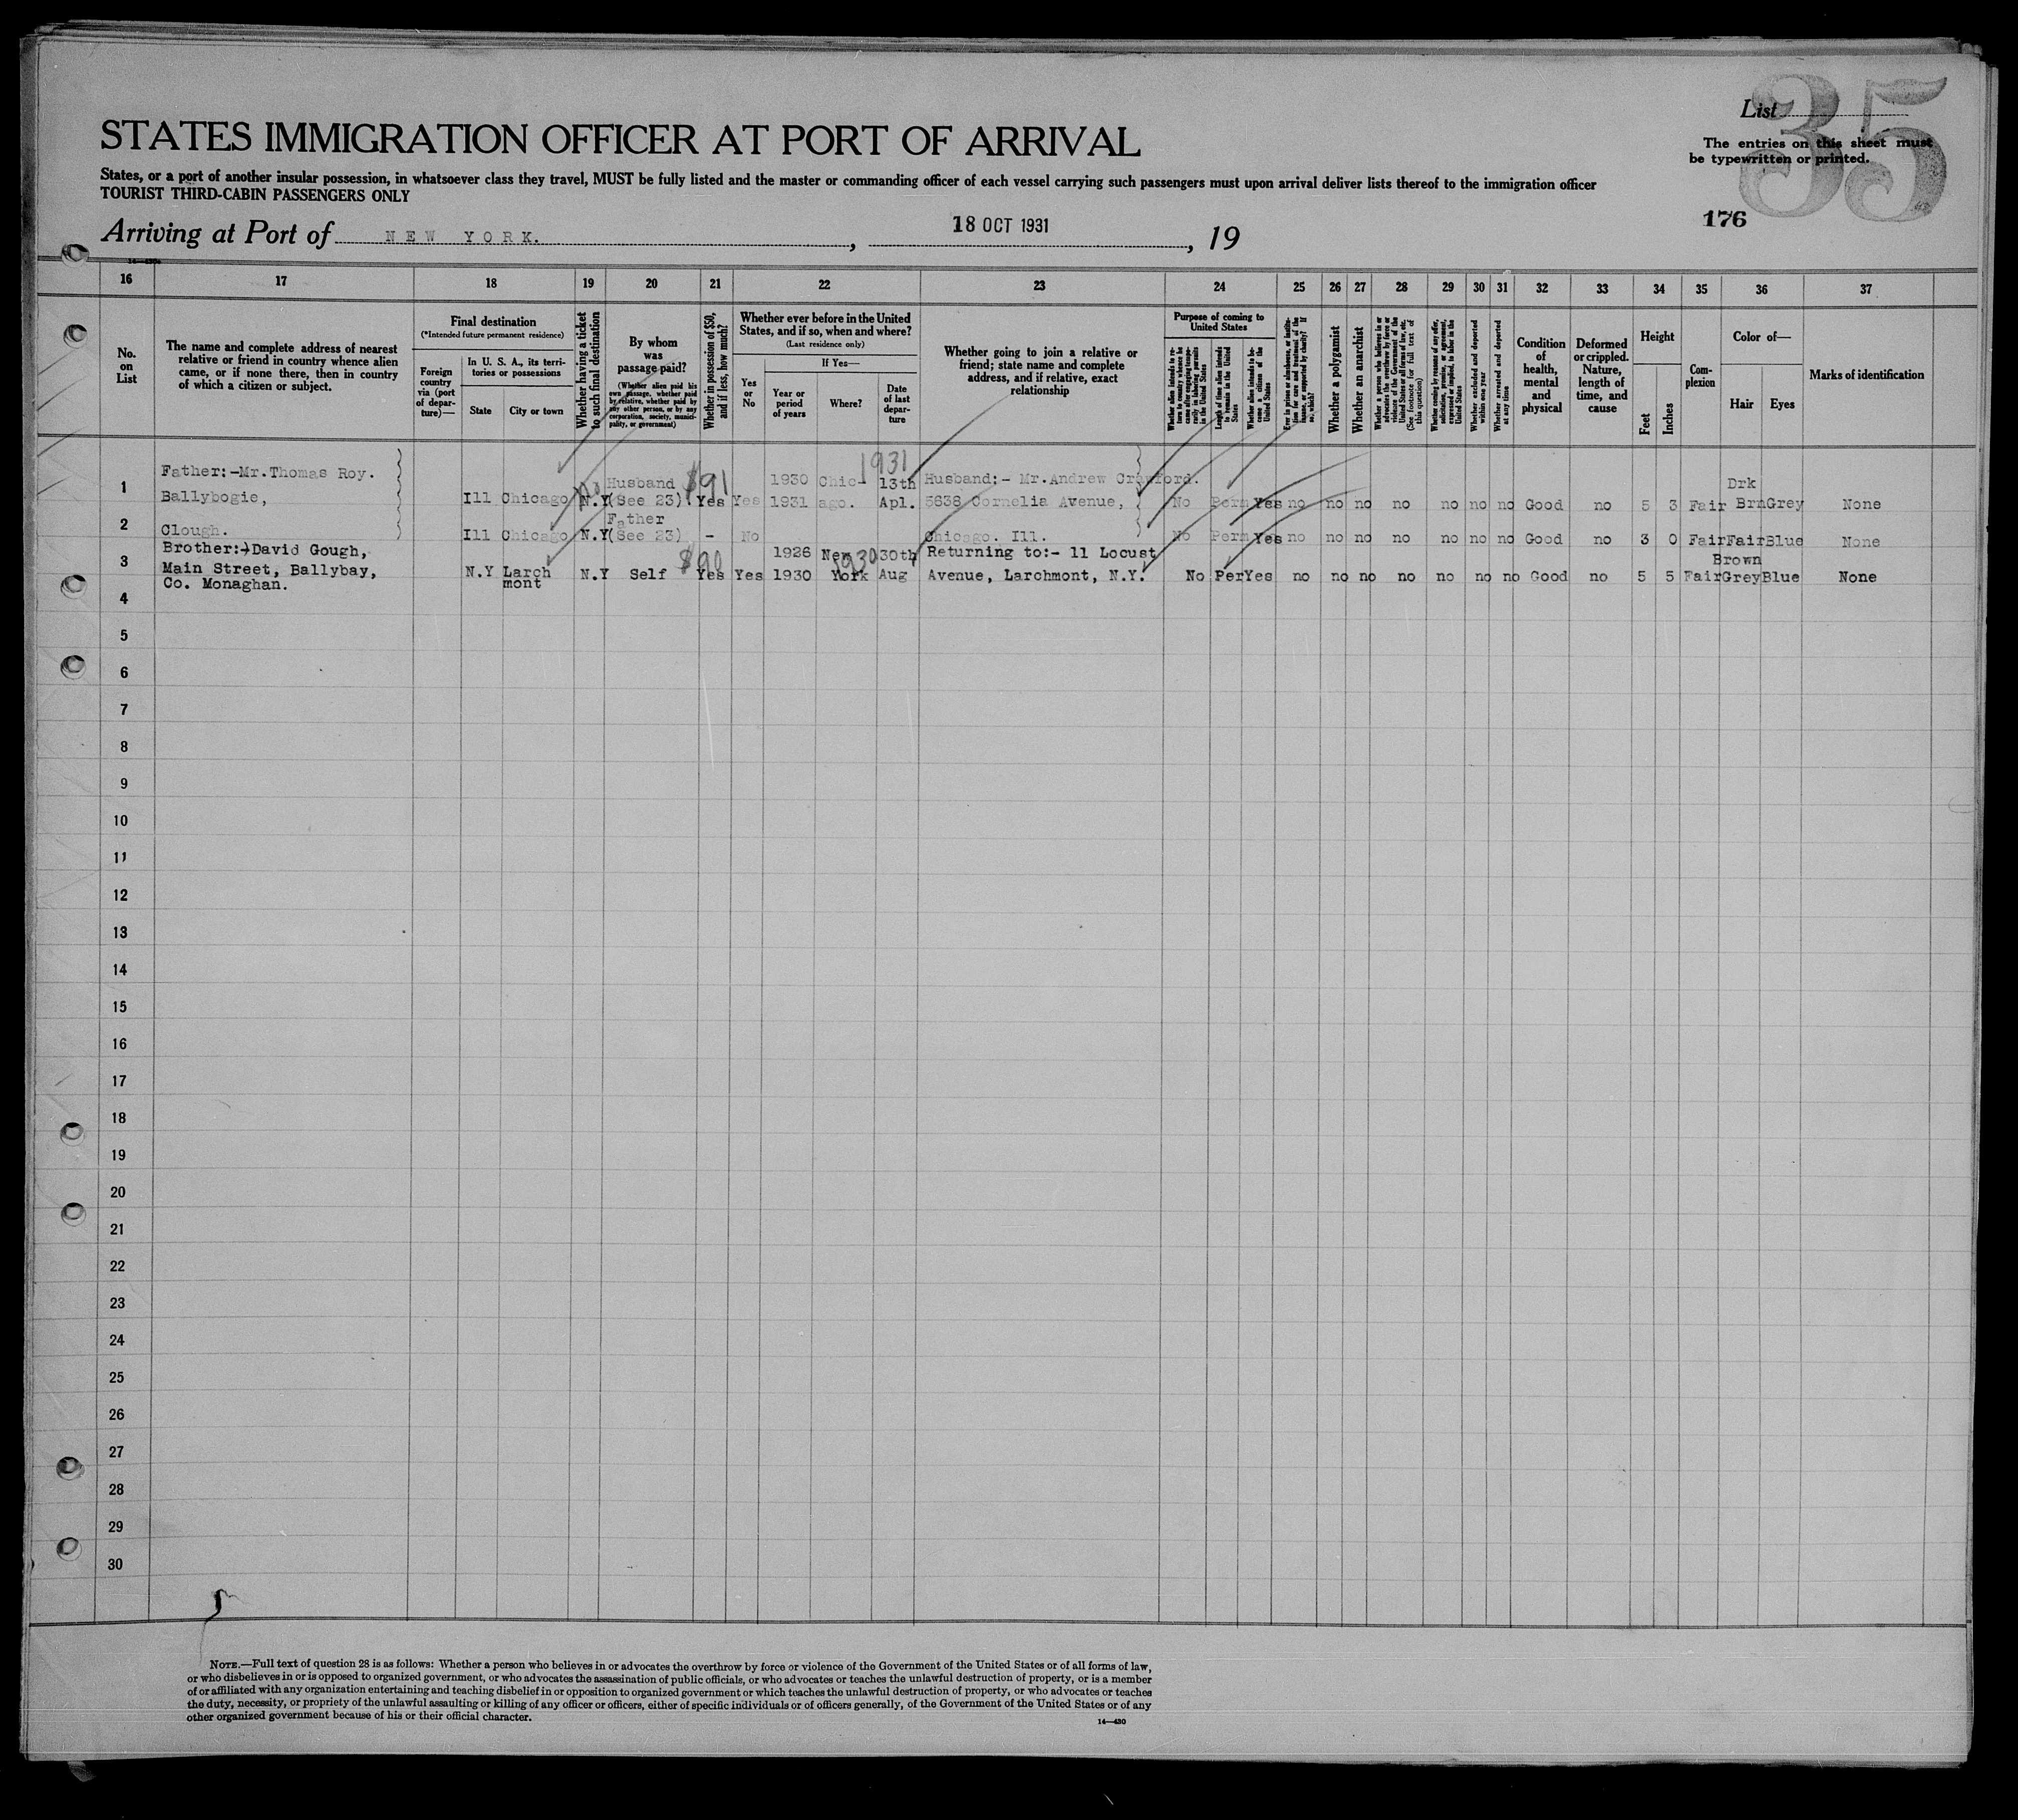 List
35
The entries on this sheet must
be typewritten or printed.
176
STATES IMMIGRATION OFFICER AT PORT OF ARRIVAL
States, or a port of another insular possession, in whatsoever class they travel, MUST be fully listed and the master or commanding officer of each vessel carrying such passengers must upon arrival deliver lists thereof to the immigration officer
TOURIST THIRD-CABIN PASSENGERS ONLY
Arriving at Port of NEW YORK. , 18 OCT 1931 , 19
16 17 18 19 20 21 22 23 24 25 26 27 28 29 30 31 32 33 34 35 36 37
No.
on
List
The name and complete address of nearest
relative or friend in country whence alien
came, or if none there, then in country
of which a citizen or subject.
Final destination
(*Intended future permanent residence)
Foreign
country
via (port
of depar-
ture)—
In U. S. A., its terri-
tories or possessions
State
City or town
Whether having a ticket
to such final destination
By whom
was
passage paid?
(Whether alien paid his
own passage, whether paid
by relative, whether paid by
any other person, or by any
corporation, society, munici-
pality, or government)
Whether in possession of $50,
and if less, how much?
Whether ever before in the United
States, and if so, when and where?
(Last residence only)
Yes
or
No
If Yes—
Year or
period
of years
Where?
Date
of last
depar-
ture
Whether going to join a relative or
friend; state name and complete
address, and if relative, exact
relationship
Purpose of coming to
United States
Length of time alien intends
to remain in the United
States
Whether alien intends to be-
come a citizen of the
United States
Whether a polygamist
Whether an anarchist
(See footnote for full text of
this question)
Whether excluded and deported
within one year
Whether arrested and deported
at any time
Condition
of
health,
mental
and
physical
Deformed
or crippled.
Nature,
length of
time, and
cause
Height
Feet
Inches
Com-
plexion
Color of—
Hair
Eyes
Marks of identification
1 Father:-Mr.Thomas Roy.
Ballybogie,
Ill Chicago No N.Y Husband (See 23) $91 Yes Yes 1930 1931 Chic- ago. 1931 13th Apl. Husband:- Mr.Andrew Crawford. 5638 Cornelia Avenue, No Perm Yes no no no no no no no Good no 5 3 Fair Drk Brn Grey None
2 Clough.
Ill Chicago N.Y Father (See 23) - No Chicago. Ill. No Perm Yes no no no no no no no Good no 3 0 Fair Fair Blue None
3 Brother:-David Gough,
Main Street, Ballybay,
Co. Monaghan.
N.Y Larch
mont
N.Y Self $90 Yes Yes 1926 1930 New York 1930 30th Aug Returning to:- 11 Locust
Avenue, Larchmont, N.Y. No Per Yes no no no no no no no Good no 5 5 Fair Brown Grey Blue None
4
5
6
7
8
9
10
11
12
13
14
15
16
17
18
19
20
21
22
23
24
25
26
27
28
29
30
NOTE.—Full text of question 28 is as follows: Whether a person who believes in or advocates the overthrow by force or violence of the Government of the United States or of all forms of law,
or who disbelieves in or is opposed to organized government, or who advocates the assassination of public officials, or who advocates or teaches the unlawful destruction of property, or is a member
of or affiliated with any organization entertaining and teaching disbelief in or opposition to organized government or which teaches the unlawful destruction of property, or who advocates or teaches
the duty, necessity, or propriety of the unlawful assaulting or killing of any officer or officers, either of specific individuals or of officers generally, of the Government of the United States or of any
other organized government because of his or their official character.
14—430